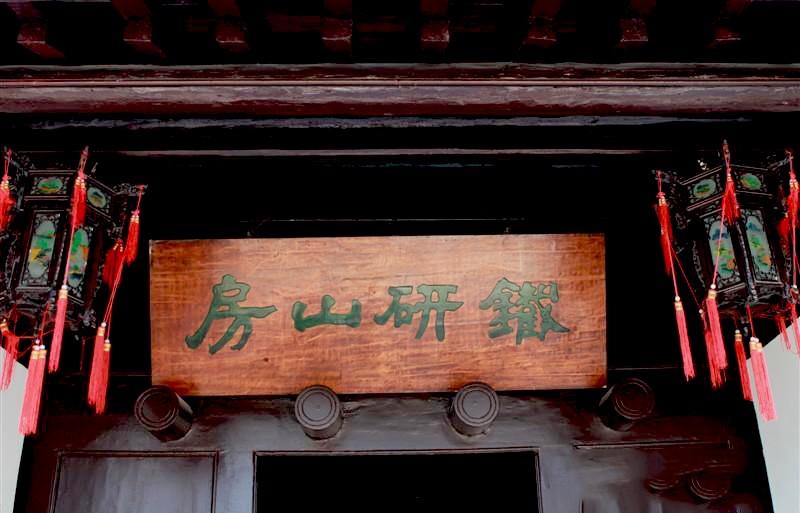 鐵研山房